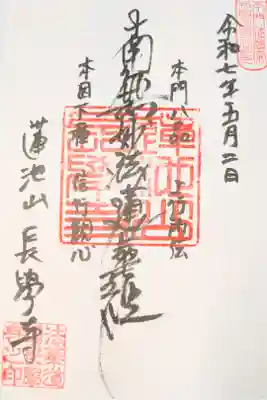 令和七年五月二日
本門八品 上行所伝
南無妙法蓮華経
本因下種 信行観心
蓮池山 長學寺